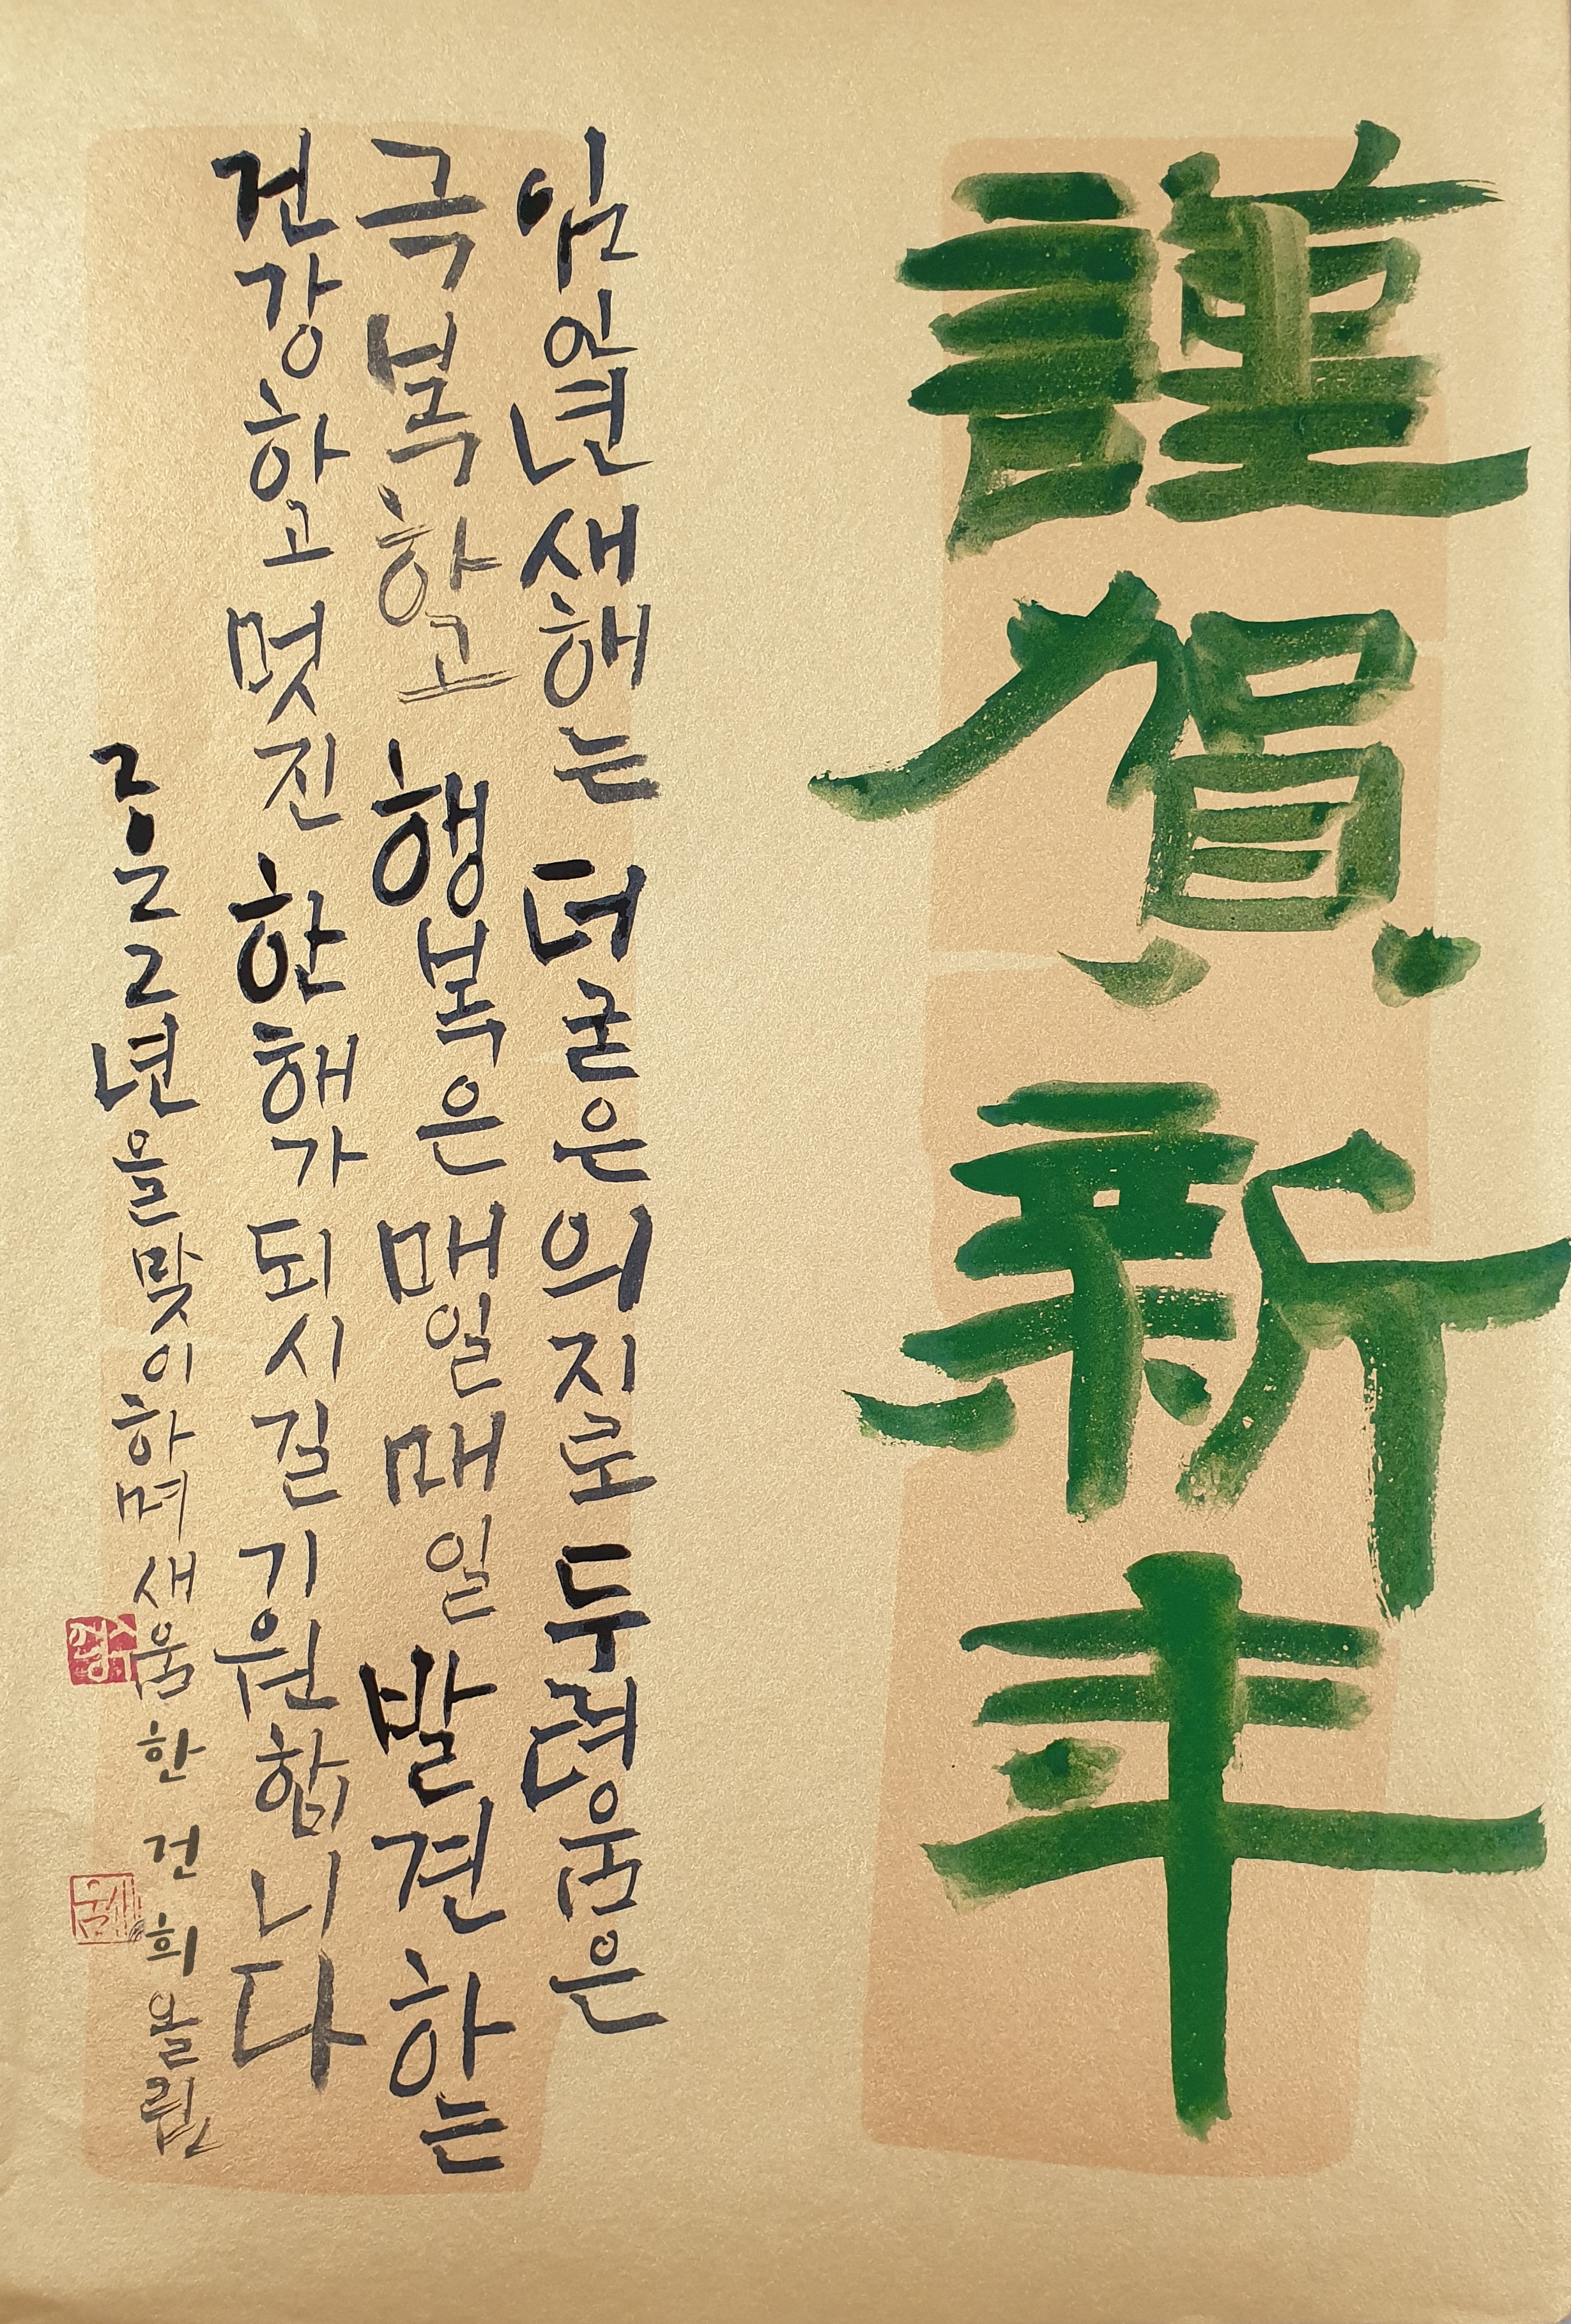 謹賀新年
임인년 새해는 더 굳은 의지로 두려움은
극복하고 행복은 매일매일 발견하는
건강하고 멋진 한해가 되시길 기원합니다
2022년을 맞이하며 새움 한건희 올림
새움